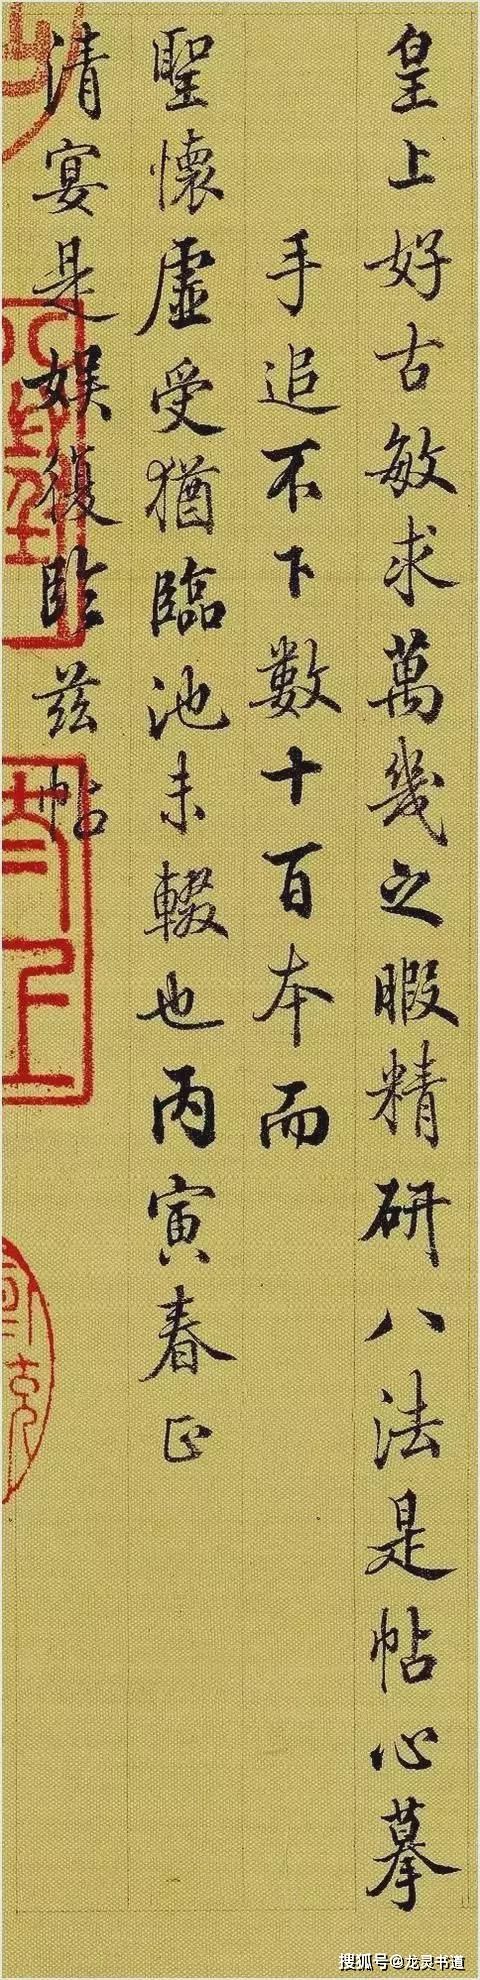 皇上好古敏求萬幾之暇精研八法是帖心摹
手追不下數十百本而
聖懷虛受猶臨池未輟也丙寅春正
清宴是娛復臨茲帖
搜狐号@龙灵书道